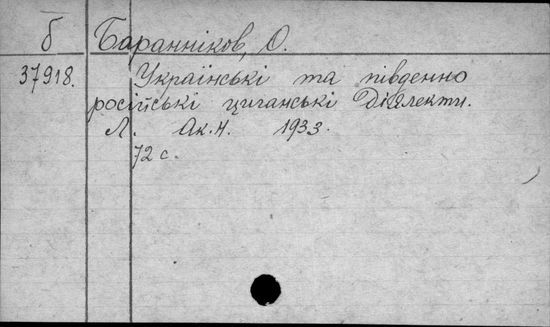 б Баранніков, О.
37918. Українські та південно
російські циганські діялекти.
Л. Ак.Н. 1933.
72 с.